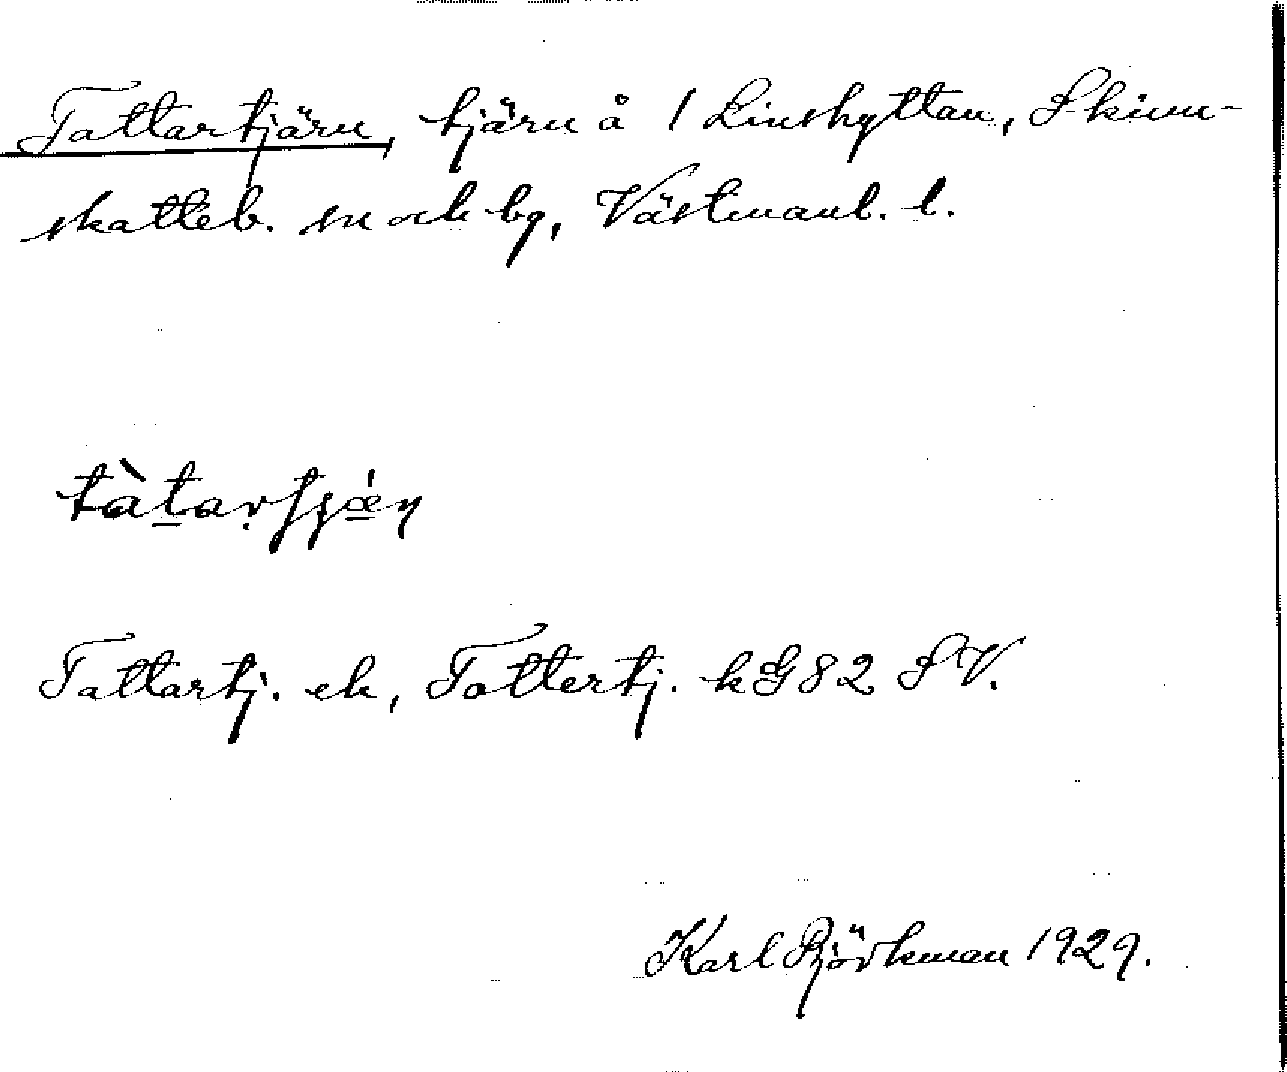 Tattartjärn, tjärn å 1 Linshyttan, Skinn-
skatteb. sn och bg, Västmanl. l.
tàtarʃjǽn
Tattartj. ek, Tattertj. kG82 SV.
Karl Björkman 1929.